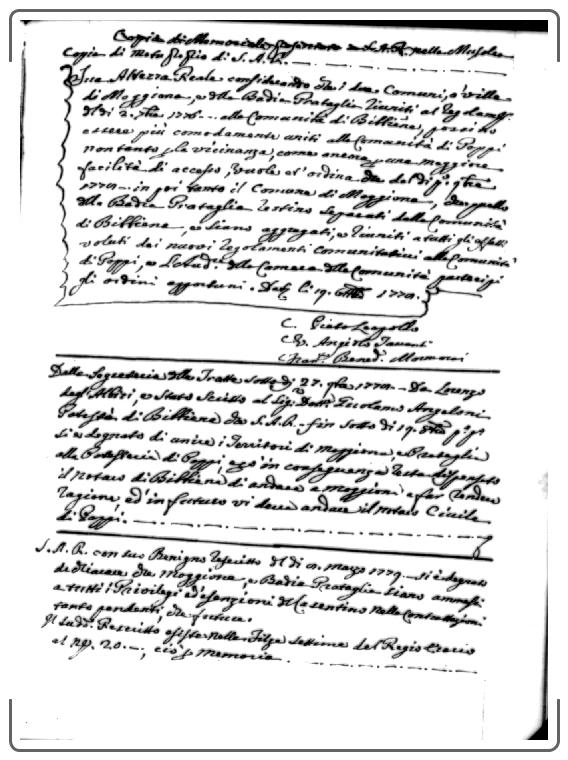 Copia di Memoriale presentato a S.A.R. nelle
Copia di Motoproprio di S. A. R.
Sua Altezza Reale considerando che i due Comuni, o ville
di Moggiona, e della Badia Prataglia riuniti al Regolamto.
del dì 2. 7bre 1776. alla Comunità di Bibbiena, possino
essere più comodamente uniti alla Comunità di Poppi
non tanto p la vicinanza, come anche p una maggiore
facilità di accesso, vuole ed ordina che del dì pº. 9bre
in poi tanto il Comune di Moggiona, che quello
della Badia Prataglia restino separati dalla Comunità
di Bibbiena, e siano aggregati, e riuniti a tutti gli effetti
voluti dai nuovi regolamenti Comunitativi alla Comunità
di Poppi, e della Camera delle Comunità partecipi
gli ordini opportuni. Dat. li 19. 8bre
Pietro Leopoldo
V. Angiolo Tavanti
Bened. Mormorai
Dalla Segreteria delle Tratte sotto dì 27. 9bre Da Lorenzo
degl'Albizi, è stato scritto al Sig. Dott. Girolamo Angeloni
Potestà di Bibbiena che S.A.R. fin sotto dì 19. 8bre pº. pº.
si è degnato di unire i Territori di Moggiona, e Prataglia
alla Potesteria di Poppi, e in conseguenza resta dispensato
il notaro di Bibbiena di andare a Moggiona a far rendere
ragione ed in futuro vi deve andare il notaro Civile
di Poppi.
S. A. R. con suo Benigno rescritto del dì marzo 1779. si è degnato
dichiarare che Moggiona, e Badia Prataglia siano ammessi
a tutti i Privilegi ed esenzioni del Casentino nelle Contrattazioni
tanto pendenti, che future.
Il sudd. Rescritto esiste nella Filza settima del Regio
al nº. 20., ciò p memoria